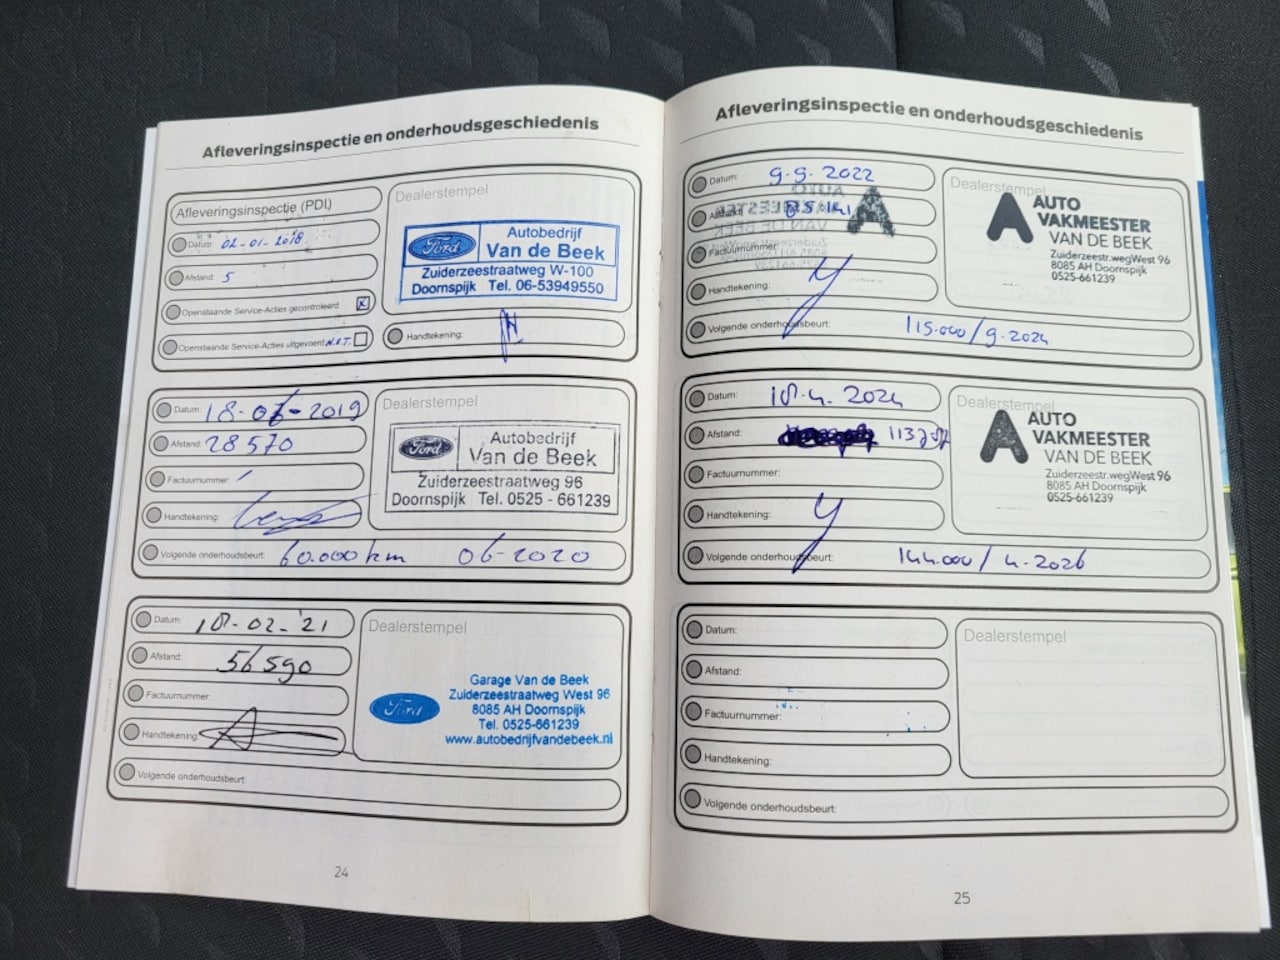 Afleveringsinspectie en onderhoudsgeschiedenis
Afleveringsinspectie (PDI)
Datum: 02-01-2018
Afstand: 5
Openstaande Service-Acties gecontroleerd X
Openstaande Service-Acties uitgevoerd N.V.T.
Dealerstempel
Ford
Autobedrijf
Van de Beek
Zuiderzeestraatweg W-100
Doornspijk Tel. 06-53949550
Handtekening:
Datum: 18-06-2019
Afstand: 28570
Factuurnummer: /
Handtekening:
Dealerstempel
Ford
Autobedrijf
Van de Beek
Zuiderzeestraatweg 96
Doornspijk Tel. 0525 - 661239
Volgende onderhoudsbeurt: 60.000 km 06-2020
Datum: 18-02-'21
Afstand: 56590
Factuurnummer:
Handtekening:
Dealerstempel
Ford
Garage Van de Beek
Zuiderzeestraatweg West 96
8085 AH Doornspijk
Tel. 0525-661239
www.autobedrijfvandebeek.nl
Volgende onderhoudsbeurt:
24
Afleveringsinspectie en onderhoudsgeschiedenis
Datum: 9.9.2022
Afstand:
Factuurnummer:
Handtekening:
Dealerstempel
AUTO
VAKMEESTER
VAN DE BEEK
Zuiderzeestr.wegWest 96
8085 AH Doornspijk
0525-661239
Volgende onderhoudsbeurt: 115.000/9.2024
Datum: 18.4.2024
Afstand:
Factuurnummer:
Handtekening:
Dealerstempel
AUTO
VAKMEESTER
VAN DE BEEK
Zuiderzeestr.wegWest 96
8085 AH Doornspijk
0525-661239
Volgende onderhoudsbeurt: 144.000/4.2026
Datum:
Afstand:
Factuurnummer:
Handtekening:
Dealerstempel
Volgende onderhoudsbeurt:
25